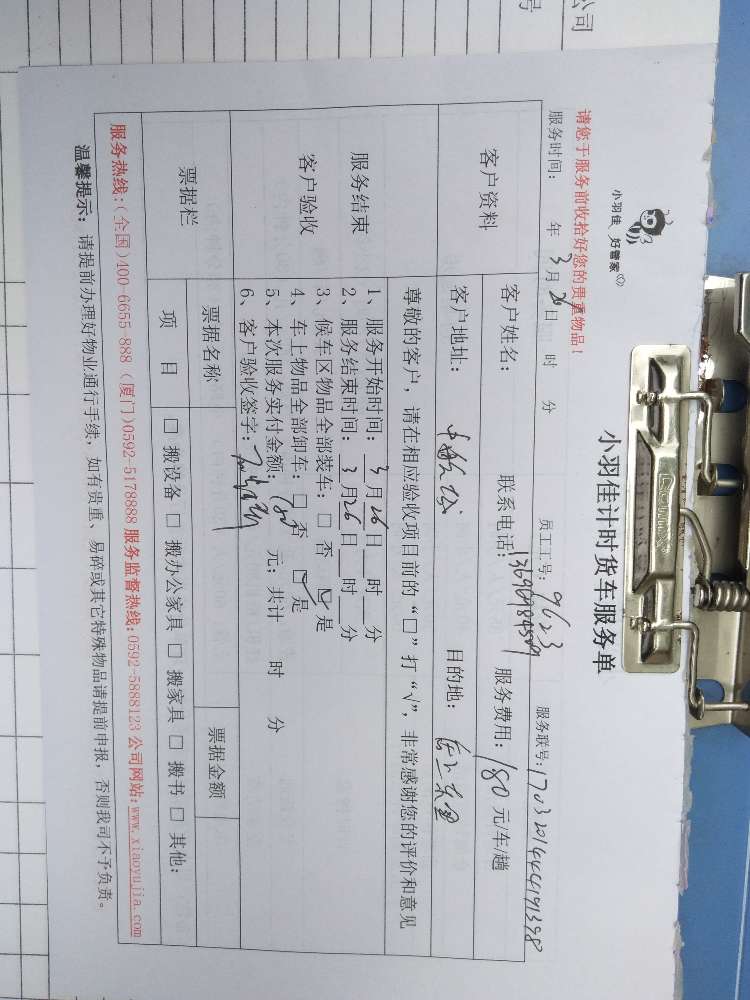 公司
号
小羽佳 好管家
小羽佳计时货车服务单
请您于服务前收拾好您的贵重物品！
服务时间： 年 3月26日 时 分 员工工号：9623 服务联号：1703201444191398
客户资料
客户姓名： 联系电话： 服务费用：180元/车/趟
客户地址： 目的地：
服务结束
客户验收
尊敬的客户，请在相应验收项目前的“□”打“√”，非常感谢您的评价和意见
1、服务开始时间：3月26日 时 分
2、服务结束时间：3月26日 时 分
3、候车区物品全部装车：□ 否 ☑ 是
4、车上物品全部卸车：□ 否 ☑ 是
5、本次服务实付金额：180 元；共计 时 分
6、客户验收签字：
票据栏
票据名称 票据金额
项 目 □ 搬设备 □ 搬办公家具 □ 搬家具 □ 搬书 □ 其他：
服务热线：（全国）400-6655-888（厦门）0592-5178888 服务监督热线：0592-5888123 公司网站：www.xiaoyujia.com
温馨提示：请提前办理好物业通行手续，如有贵重、易碎或其它特殊物品请提前申报，否则我司不予负责。